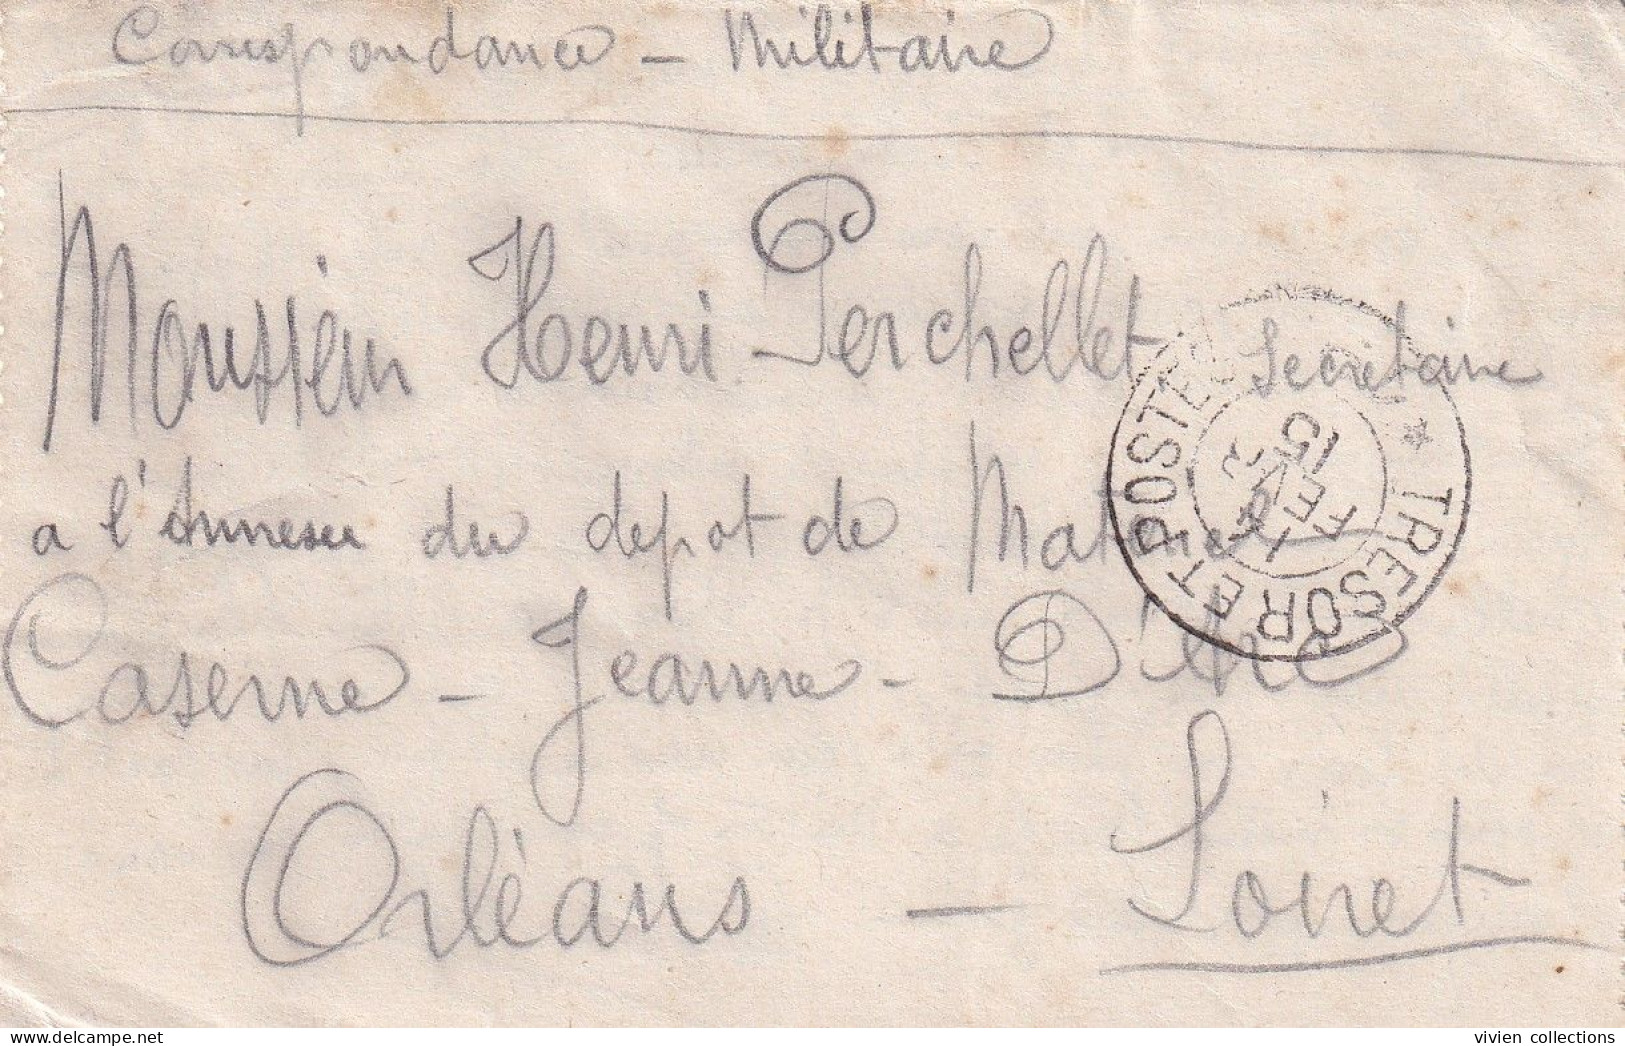 Correspondance - Militaire
Monsieur Henri Perchellet Secretaire
a l'Annexe du depot de Materiel
Caserne - Jeanne - D'Arc
Orléans - Loiret
TRESOR ET POSTES
FEVR
15
vivien collections